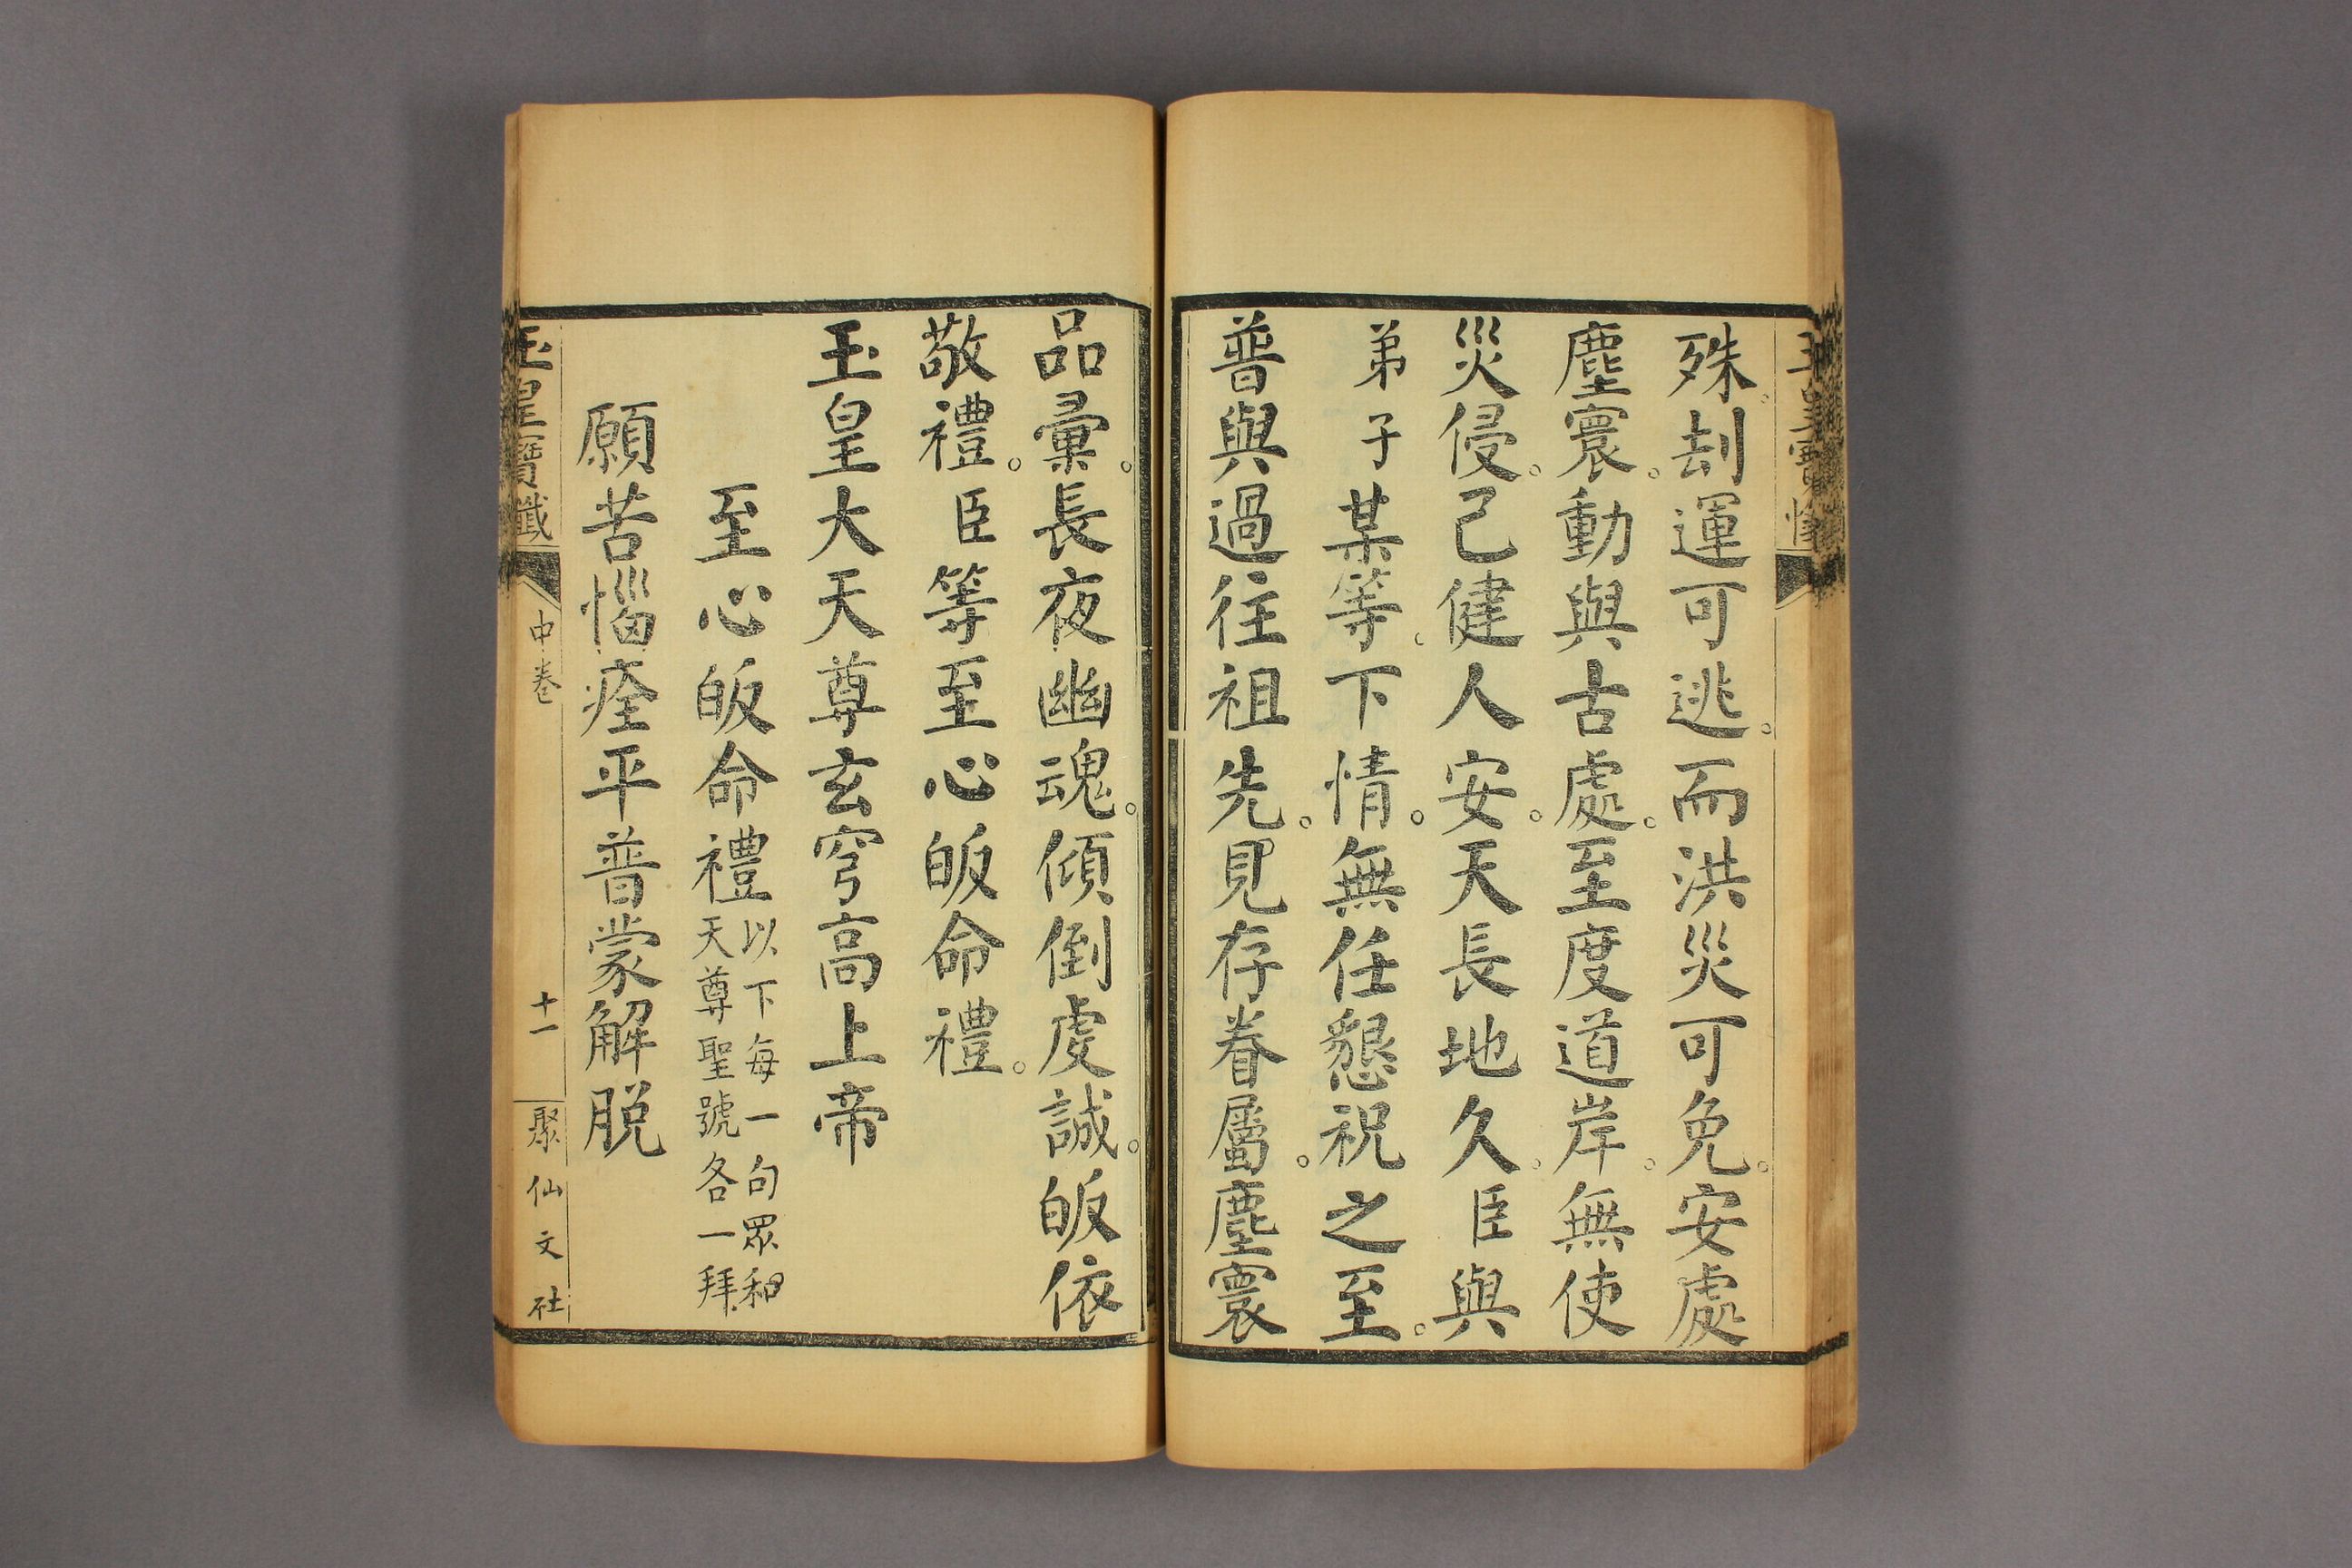 殊。刦運可逃。而洪災可免。安處
塵寰。動與古處。至度道岸。無使
災侵。己健人安。天長地久。臣與
弟子某等。下情。無任懇祝之至。
普與過往祖先。見存眷屬。塵寰
品彙。長夜幽魂。傾倒虔誠。皈依
敬禮。臣等至心皈命禮。
玉皇大天尊玄穹高上帝
至心皈命禮以下每一句眾和
天尊聖號各一拜
願苦惱痊平普蒙解脫
玉皇寶懺 中卷 十一 聚仙文社